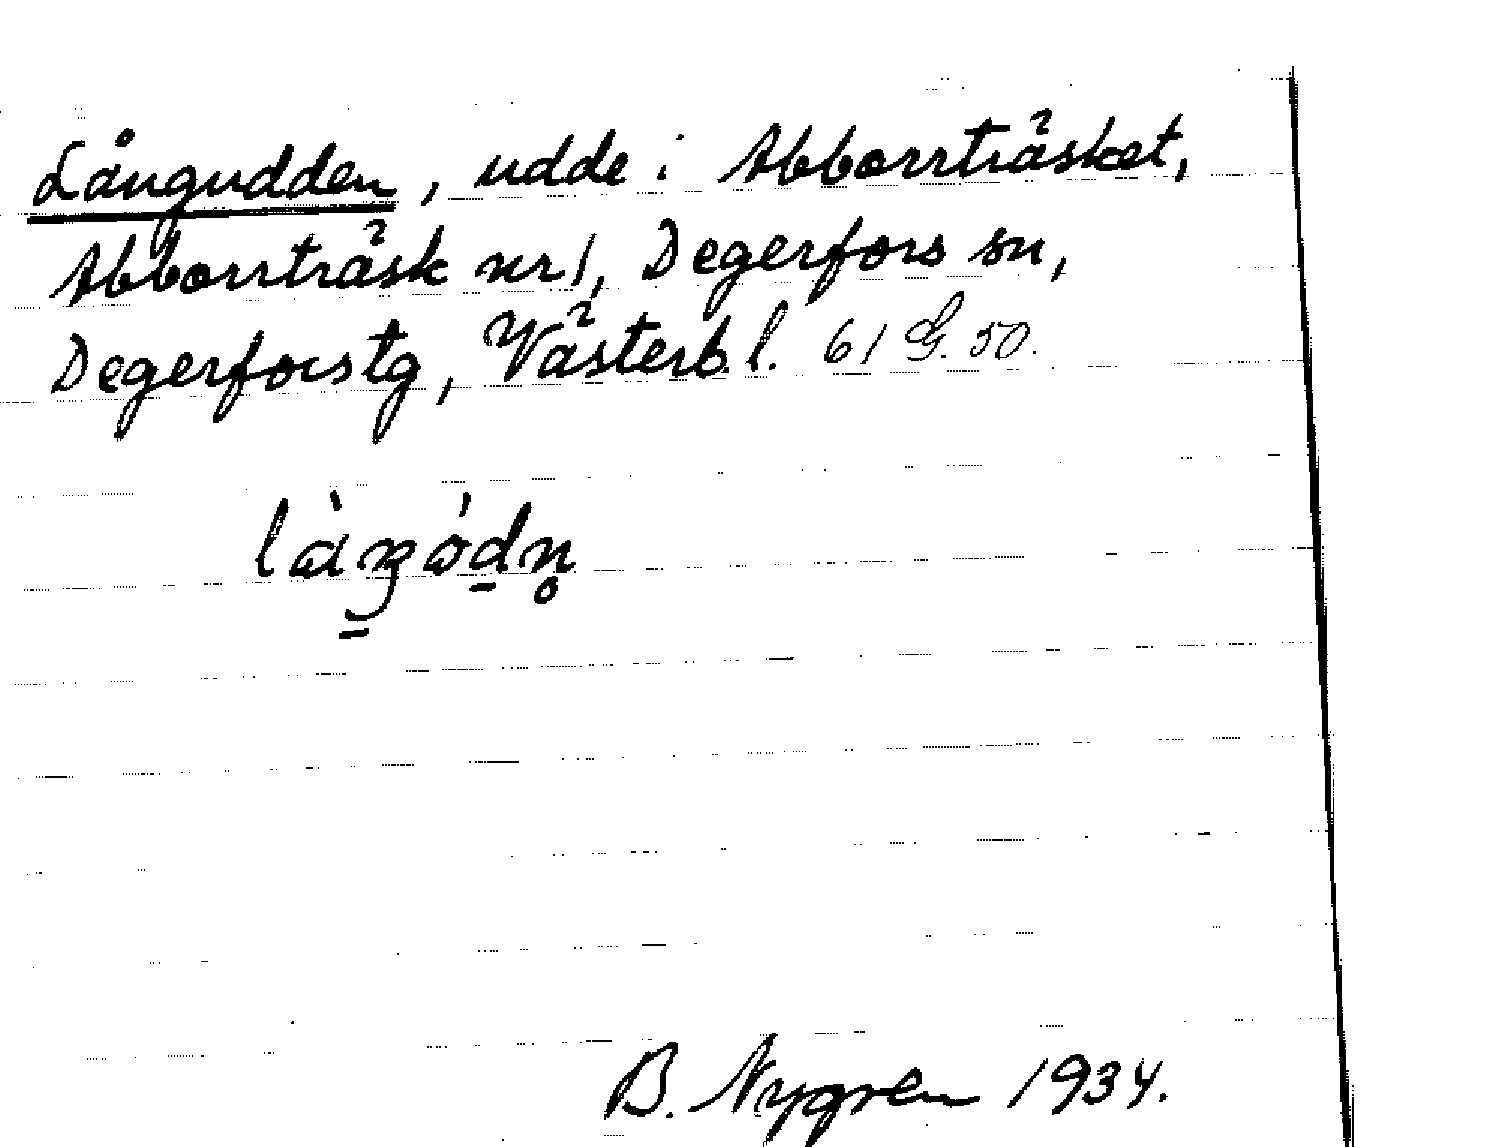 Långudden, udde i Abborrträsket,
Abborrträsk nr 1, Degerfors sn,
Degerforstg, Västerb. l. 61 G. 50.
B. Nygren 1934.